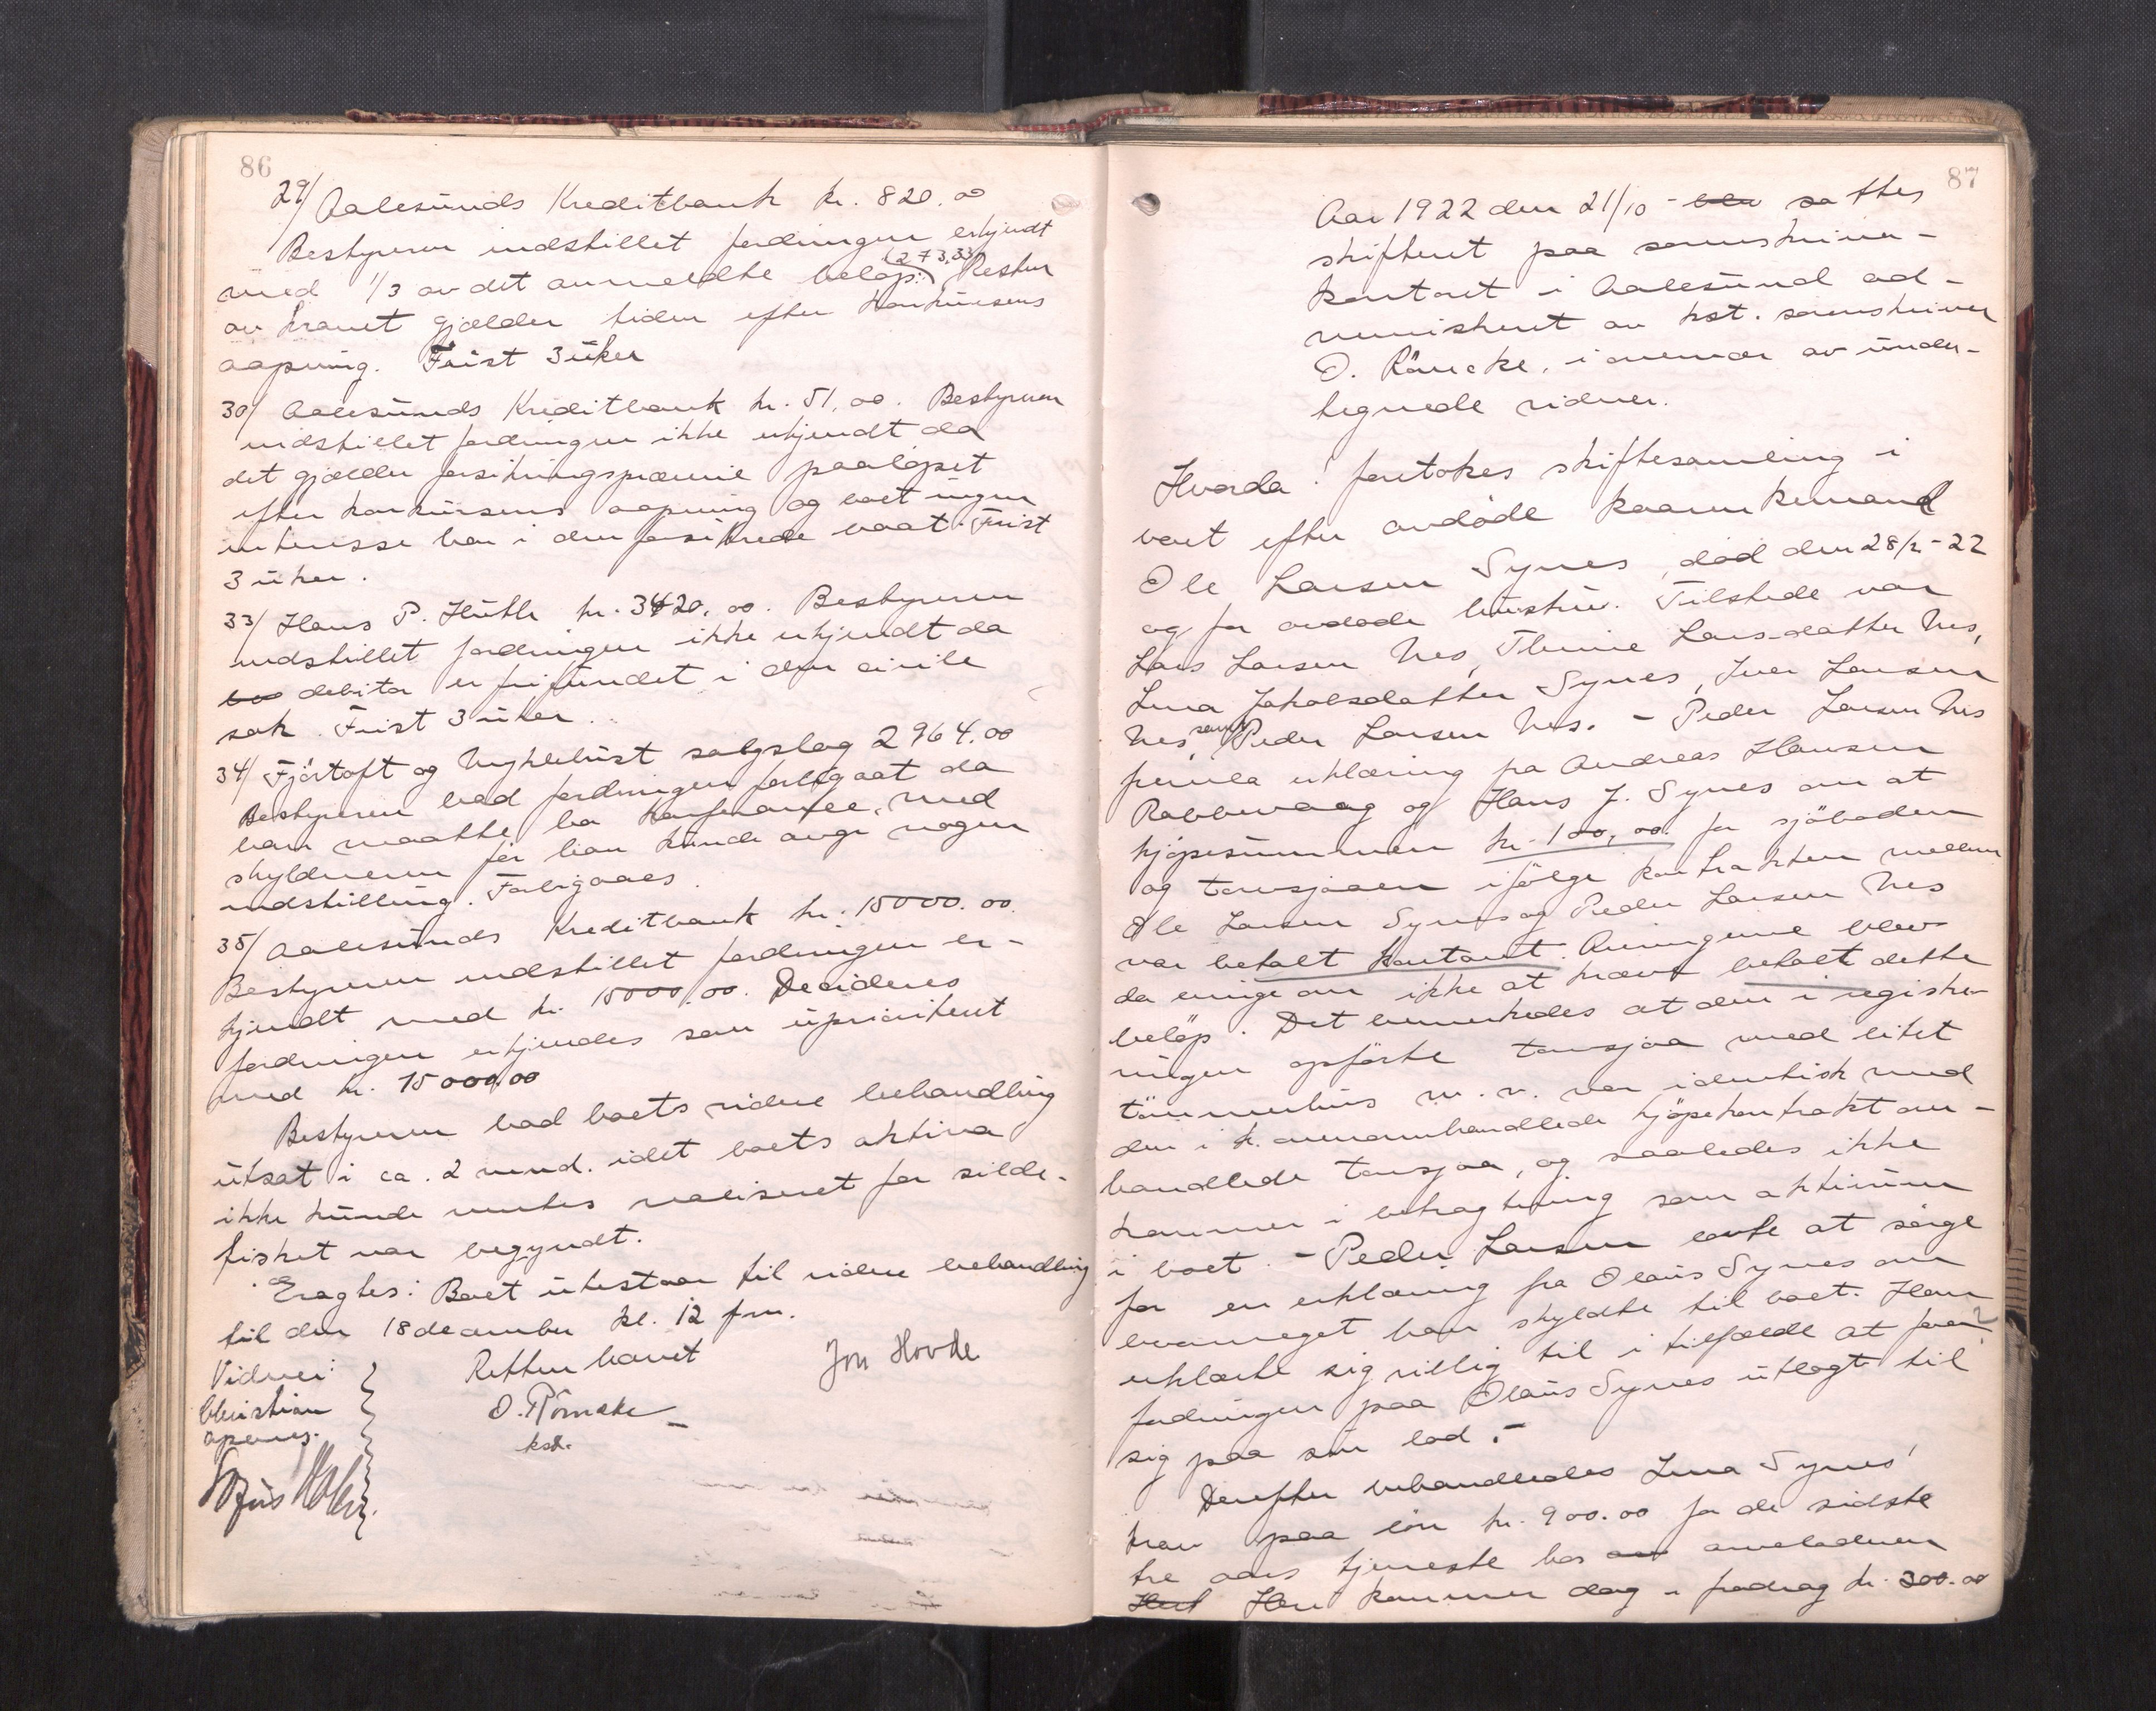 86
29/ Aalesunds Kreditbank kr. 820.00
Bestyreren indstillet fordringen erkjendt
med 1/3 av det anmeldte beløp (273,33) Resten
av kravet gjælder tiden efter konkursens
aapning. Frist 3 uker
30/ Aalesunds Kreditbank kr. 51,00. Bestyreren
indstillet fordringen ikke erkjendt da
det gjælder forsikringspræmie paaløpet
efter konkursens aapning og boet ingen
interesse har i den forsikrede baat. Frist
3 uker.
33/ Hans P. Huth kr. 3420,00. Bestyreren
indstillet fordringen ikke erkjendt da
debitor er frifundet i den civile
sak. Frist 3 uker.
34/ Fjörtoft og Myklebust salgslag 2964.00
Bestyreren bad fordringen forbigaat da
han maatte ha konferanse med
skyldneren før han kunde avgi nogen
indstilling. Forbigaaes.
35/ Aalesunds Kreditbank kr. 15000.00.
Bestyreren indstillet fordringen er-
kjendt med kr. 15000.00. Decideres
fordringen erkjendes som uprioritert
med kr. 15000,00
Bestyreren bad boets videre behandling
utsat i ca. 2 mnd. idet boets aktiva
ikke kunde ventes realisert før silde-
fisket var begyndt.
Eragtes: Boet utestaar til videre behandling
til den 18 december kl. 12 fm.
Vidner: Retten hævet Jon Hovde
Christian O. Röncke
kst.
87
Aar 1922 den 21/10 - blev sattes
skifteret paa sorenskriver-
kontoret i Aalesund ad-
ministrert av kst. sorenskriver
O. Röncke, i nærvær av under-
tegnede vidner.
Hvorda: foretokes skiftesamling i
boet efter avdøde kaarenkemand
Ole Larsen Synes, død den 28/2-22
og før avdøde hustru. Tilstede var
Lars Larsen Nes, Larsdatter Nes,
Lina Jakobsdatter Synes, Iver Larsen
Nes, samt Peder Larsen Nes. - Peder Larsen Nes
fremla erklæring fra Andreas Hansen
Rabbevaag og Hans J. Synes om at
kjøpesummen kr. 100,00 for sjøboden
og torvsjaaen ifølge kontrakten mellem
Ole Larsen Synes og Peder Larsen Nes
var betalt kontant. Arvingerne blev
da enige om ikke at kræve betalt dette
beløp. Det bemerkedes at den i registre-
ringen opførte torvsjaa med litet
tømmerhus m. v. var identisk med
den i h. omhandlede kjøpekontrakt om-
handlede torvsjaa, og saaledes ikke
kommer i betragtning som aktivum
i boet. - Peder Larsen lovte at sørge
for en erklæring fra Olaus Synes om
hvormeget han skyldte til boet. Han
erklærte sig villig til i tilfælde at faa
fordringen paa Olaus Synes utlagt til
sig paa sin lod. -
Derefter behandledes Lina Synes'
krav paa løn kr. 900.00 for de sidste
tre aars tjeneste hos avdøde
Heri kommer dog i fradrag kr. 300.00